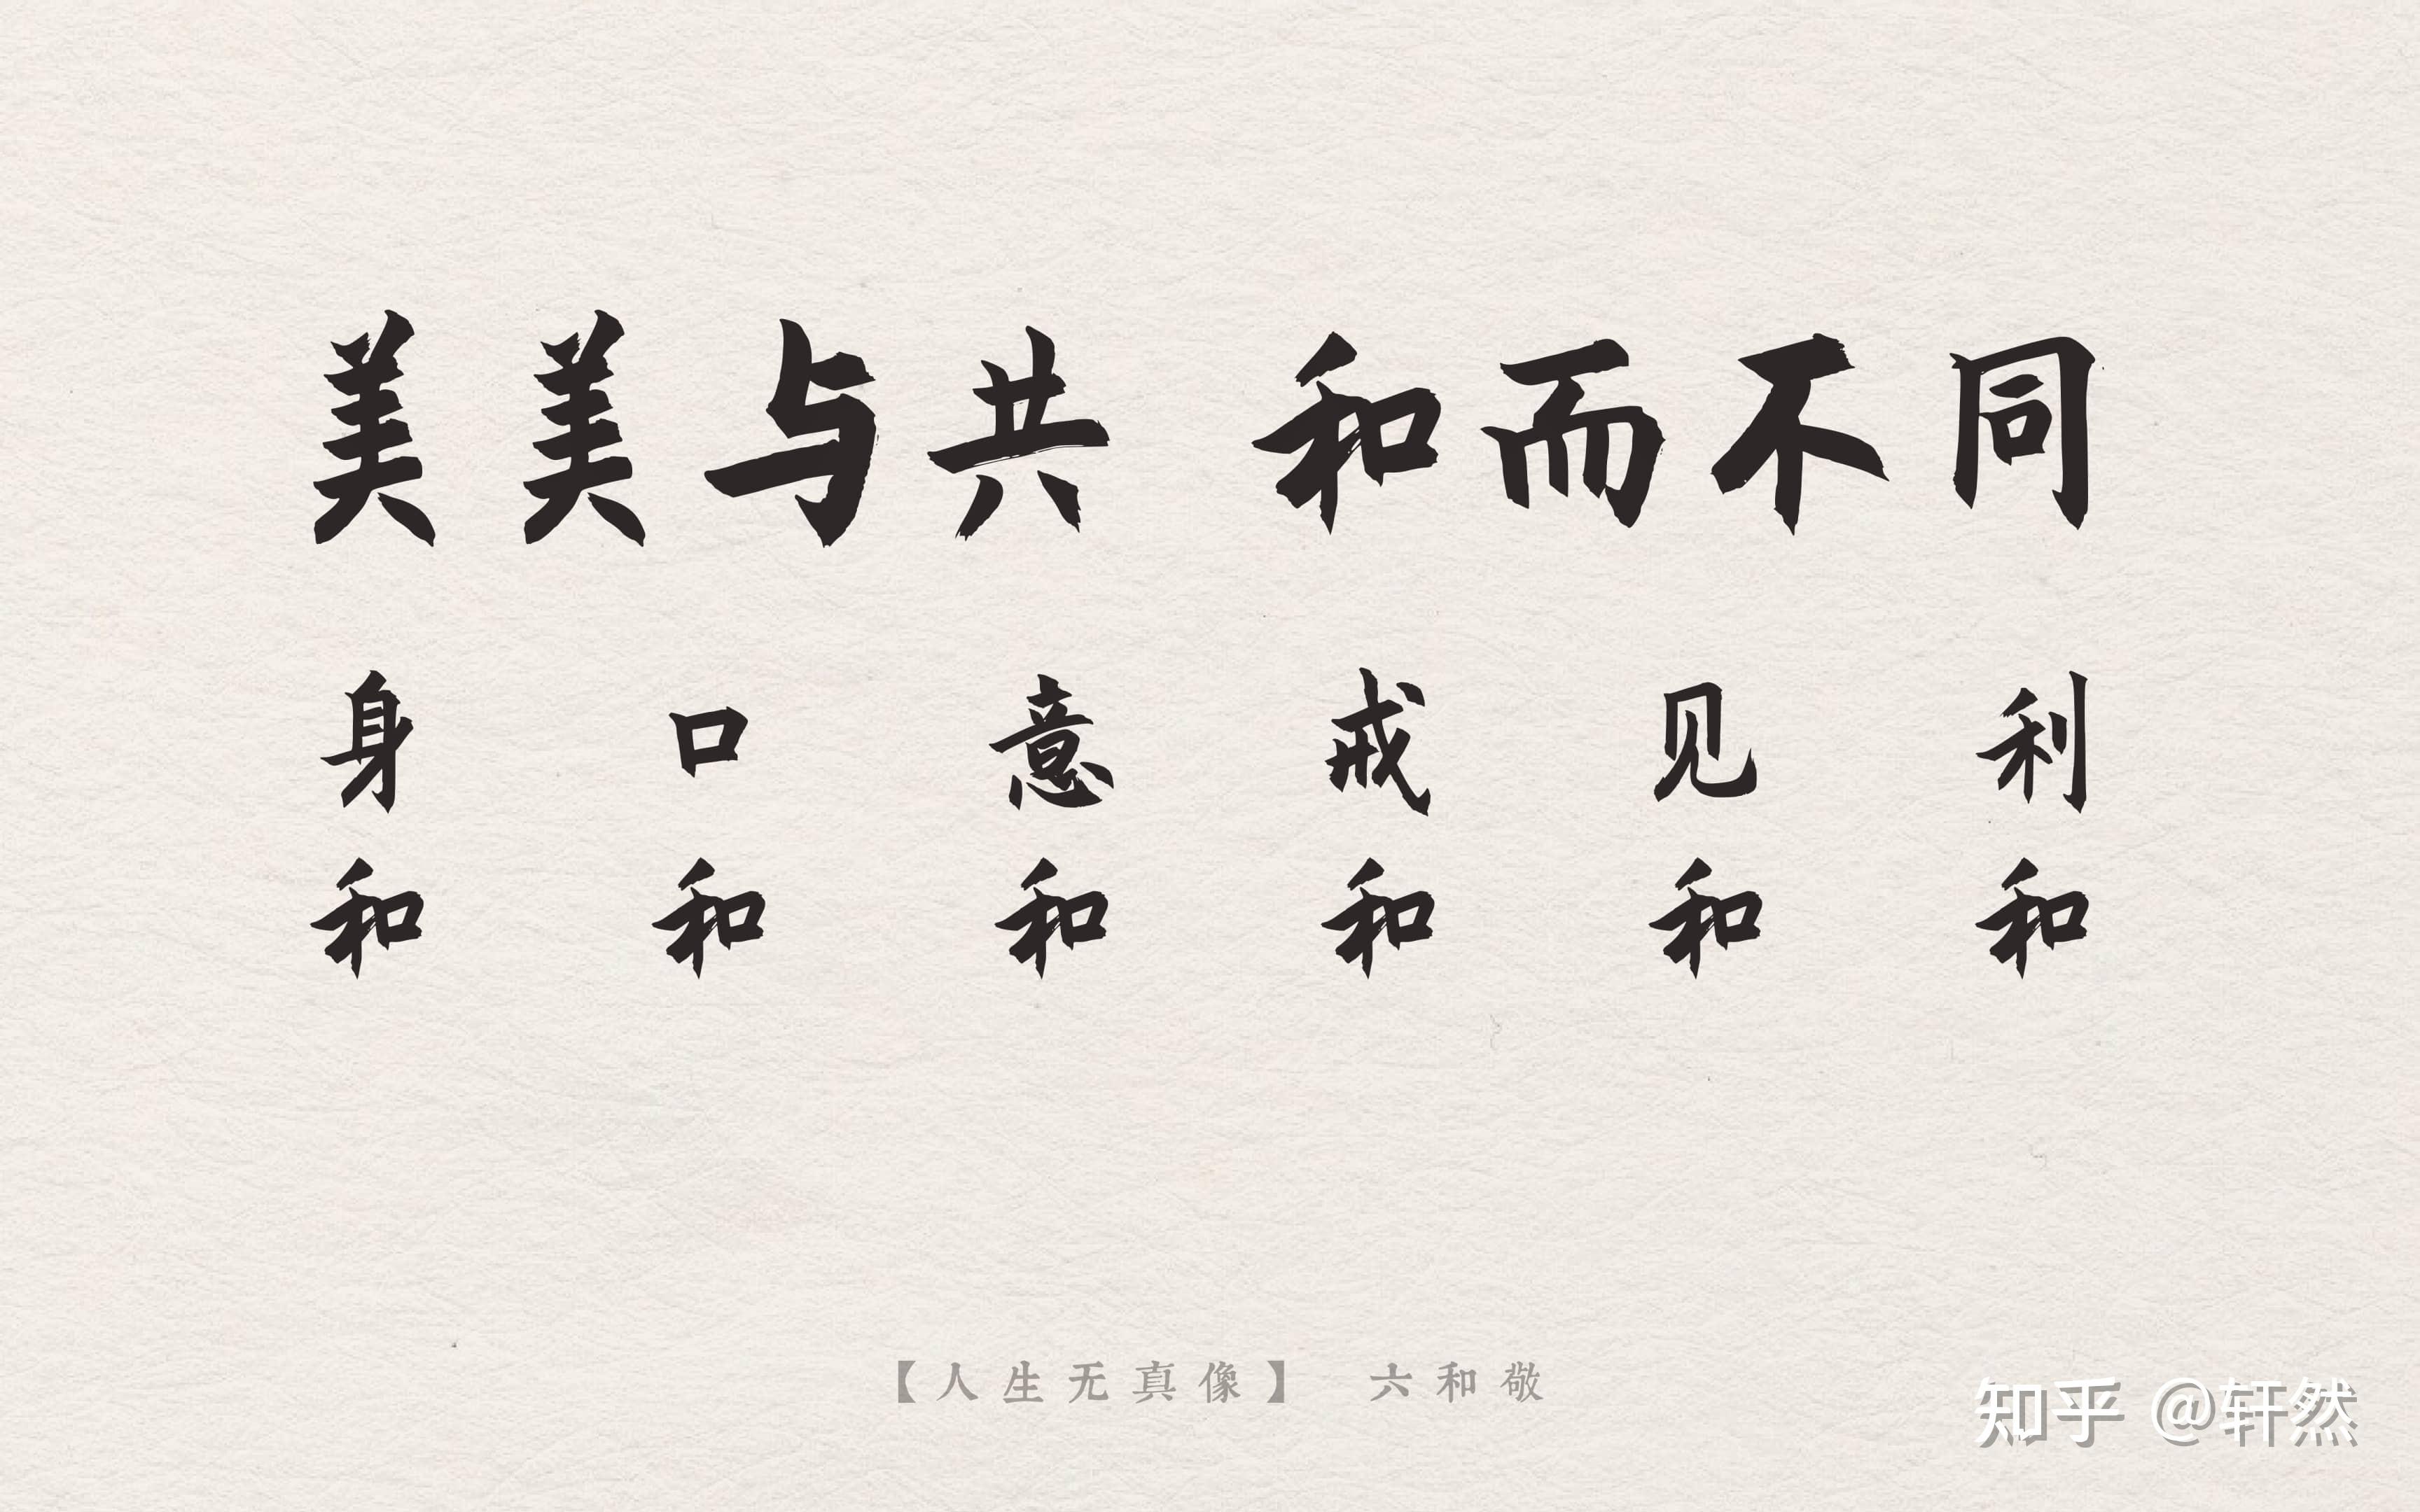 美美与共 和而不同
身 口 意 戒 见 利
和 和 和 和 和 和
【人生无真像】 六和敬
知乎 @轩然